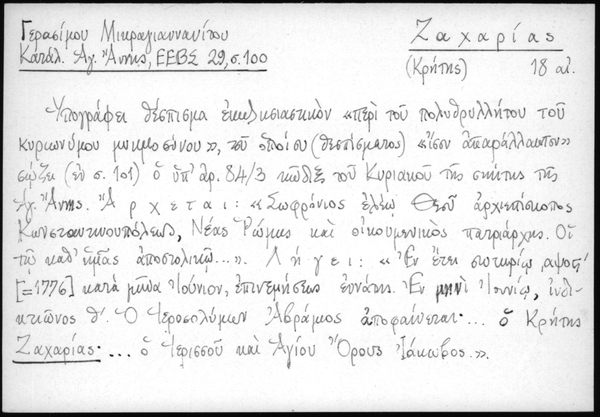 Γερασίμου Μικραγιαννανίτου
Ζαχαρίας
Κατάλ. Ἁγ. Ἄννης, ΕΕΒΣ 29, σ. 100
(Κρήτης) 18 αἰ.
Ὑπογράφει θέσπισμα ἐκκλησιαστικὸν «περὶ τοῦ πολυθρυλλήτου τοῦ
κυριωνύμου μνημοσύνου», τοῦ ὁποίου (θεσπίσματος) «ἴσον ἀπαράλλακτον»
σῴζει (ἐν σ. 101) ὁ ὑπ' ἀρ. 84/3 κῶδιξ τοῦ Κυριακοῦ τῆς σκήτης τῆς
Ἁγ. Ἄννης. Ἄρχεται: «Σωφρόνιος ἐλέῳ Θεοῦ ἀρχιεπίσκοπος
Κωνσταντινουπόλεως, Νέας Ῥώμης καὶ οἰκουμενικὸς πατριάρχης. Οἱ
τῷ καθ' ἡμᾶς ἀποστολικῷ...». Λήγει: «Ἐν ἔτει σωτηρίῳ ͵αψοϚʹ
[=1776] κατὰ μῆνα Ἰούνιον, ἐπινεμήσεως ἐνάτης. Ἐν μηνὶ Ἰουνίῳ, ἰνδι-
κτιῶνος θ'. Ὁ Ἱεροσολύμων Ἀβράμιος ἀποφαίνεται· ... ὁ Κρήτης
Ζαχαρίας· ... ὁ Ἱερισσοῦ καὶ Ἁγίου Ὄρους Ἰάκωβος.».